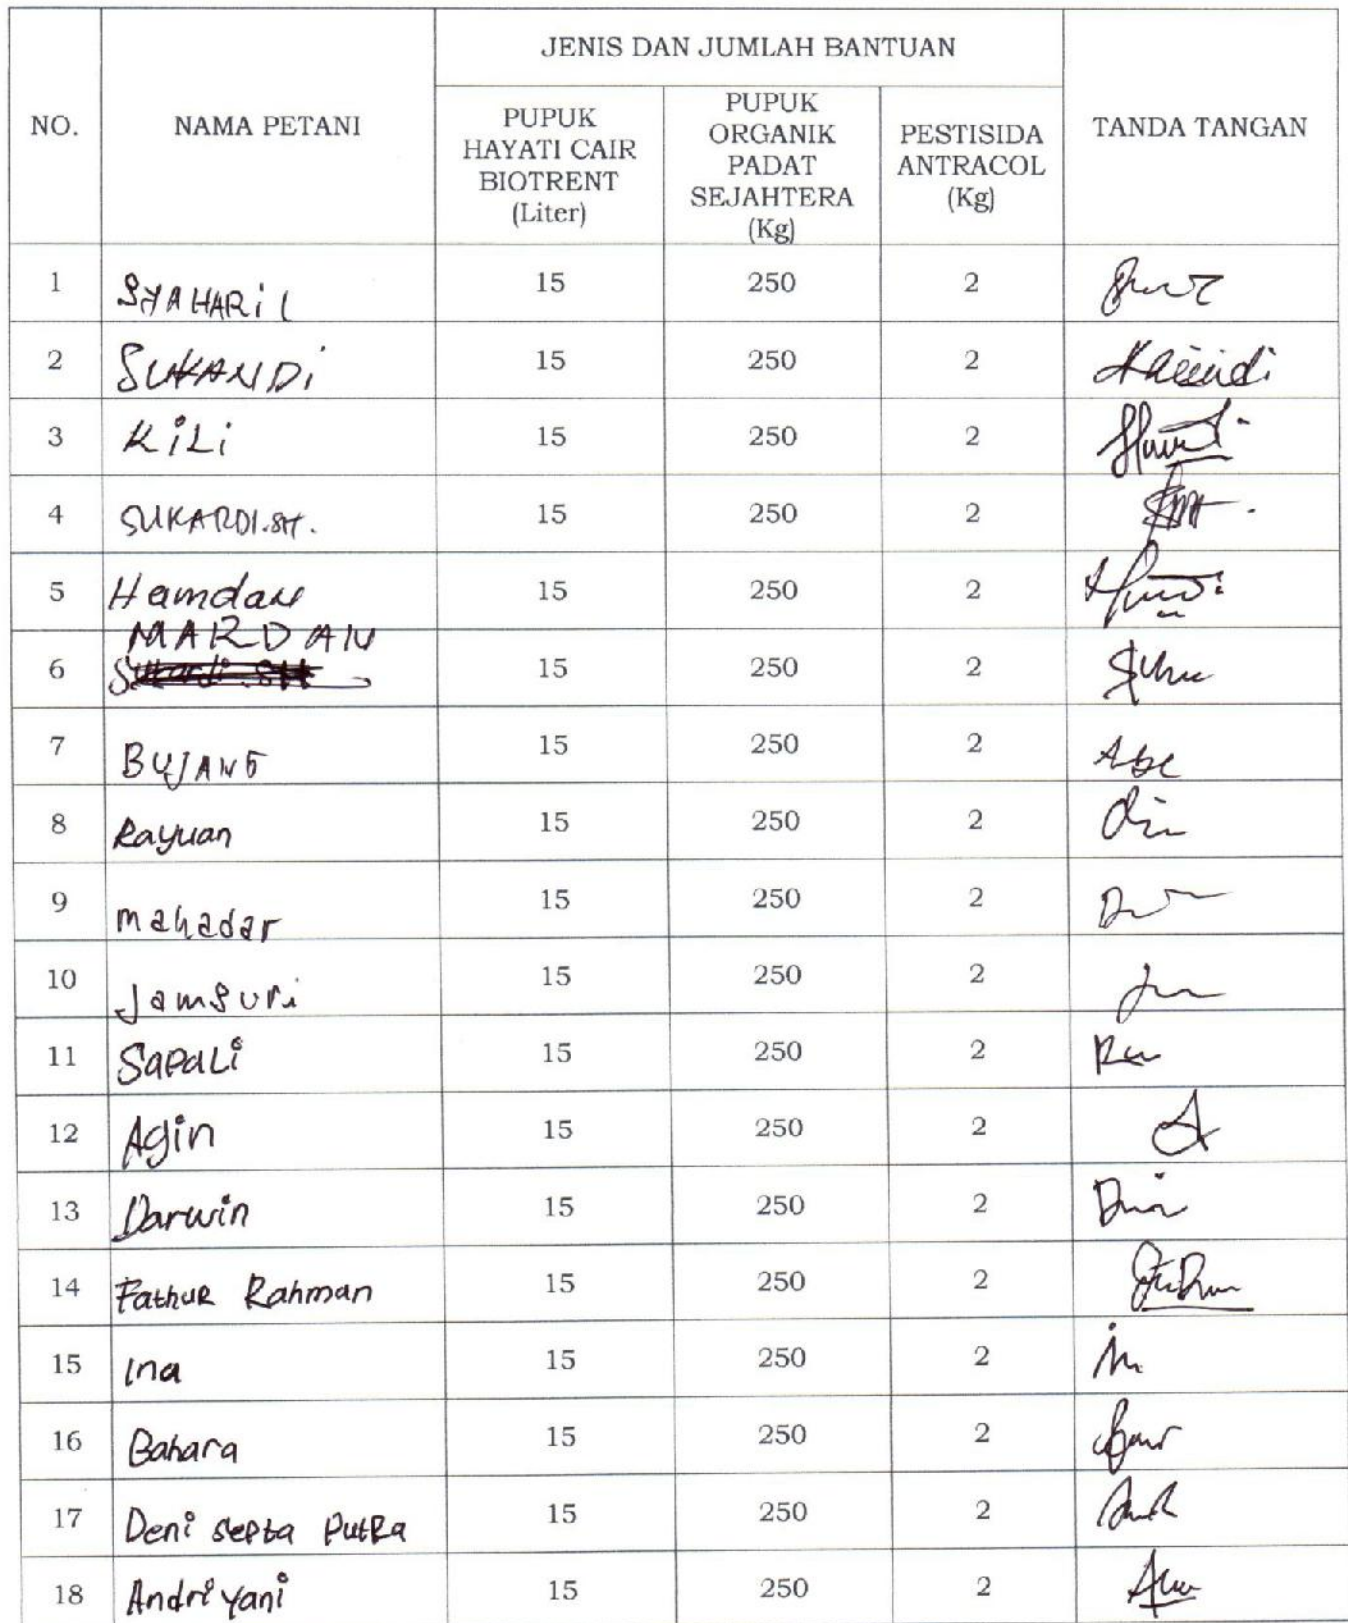 NO.
NAMA PETANI
JENIS DAN JUMLAH BANTUAN
PUPUK
HAYATI CAIR
BIOTRENT
(Liter)
PUPUK
ORGANIK
PADAT
SEJAHTERA
(Kg)
PESTISIDA
ANTRACOL
(Kg)
TANDA TANGAN
1 SYAHARIL 15 250 2
2 SUKANDI 15 250 2
3 KILI 15 250 2
4 SUKARDI.SH. 15 250 2
5 Hamdan 15 250 2
6 MARDAN 15 250 2
7 BUJANG 15 250 2
8 Rayuan 15 250 2
9 mahadar 15 250 2
10 Jamsuri 15 250 2
11 SapaLi 15 250 2
12 Agin 15 250 2
13 Darwin 15 250 2
14 FathuR Rahman 15 250 2
15 Ina 15 250 2
16 Bahara 15 250 2
17 Deni septa PutRa 15 250 2
18 Andri yani 15 250 2